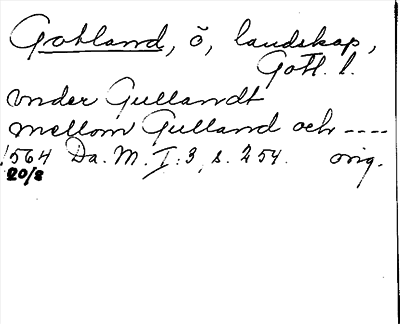 Gotland, ö, landskap,
Gotl. l.
vnder Gullandt
mellom Gulland och ----
1564 Da. M. I:3, s. 254. orig.
20/8